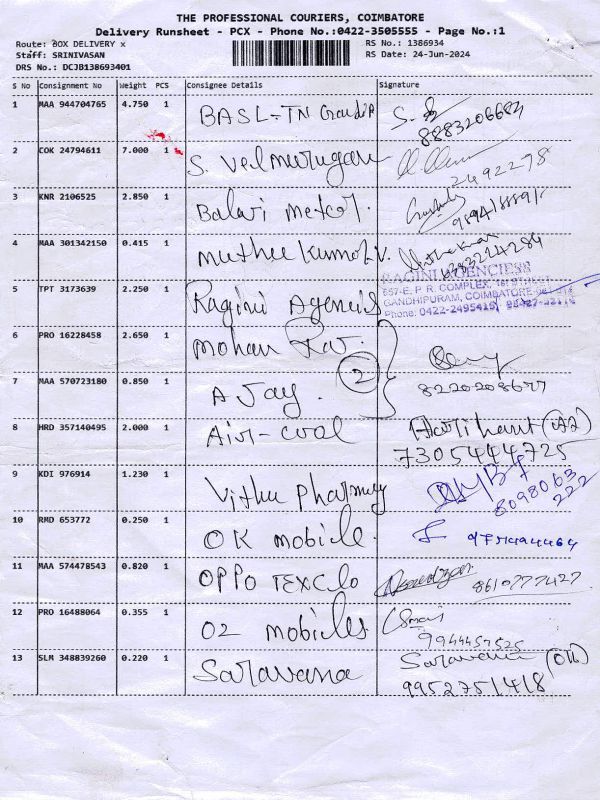 THE PROFESSIONAL COURIERS, COIMBATORE
Delivery Runsheet - PCX - Phone No.:0422-3505555 - Page No.:1
Route: BOX DELIVERY x RS No.: 1386934
Staff: SRINIVASAN RS Date: 24-Jun-2024
DRS No.: DCJB138693401
S No Consignment No Weight PCS Consignee Details Signature
1 MAA 944704765 4.750 1 BASL-TN
8883206684
2 COK 24794611 7.000 1 S. Velmurugan
2492278
3 KNR 2106525 2.850 1 Balaji Metal.
4 MAA 301342150 0.415 1 Muthu Kumar.V.
RAGINI AGENCIESS
657-E, P.R. COMPLEX, 1st STREET
5 TPT 3173639 2.250 1 Ragini Agencies GANDHIPURAM, COIMBATORE
Phone: 0422-2495415,
6 PRO 16228458 2.650 1 Mohan Raj.
2
7 MAA 570723180 0.850 1 A Jay. 8220208677
8 HRD 357140495 2.000 1 Air-cool Harihant
7305444725
9 KDI 976914 1.230 1 Vithu Pharmacy
8098063
222
10 RMD 653772 0.250 1 OK mobile.
11 MAA 574478543 0.820 1 OPPO TEXClo 8610777427
12 PRO 16488064 0.355 1 O2 mobiles
9944457525
13 SLM 348839260 0.220 1 Saravana Saravana
9952751418